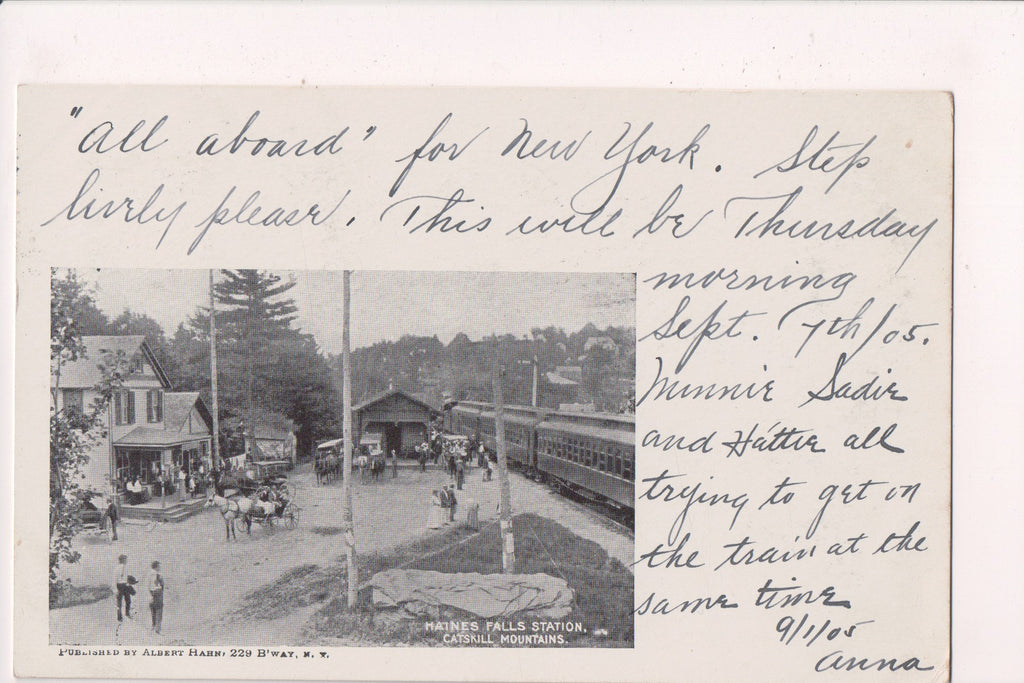 "All aboard" for New York. Step
lively please. This will be Thursday
morning
Sept. 7th/05.
Minnie Sadie
and Hattie all
trying to get on
the train at the
same time
9/1/05
Anna
HAINES FALLS STATION,
CATSKILL MOUNTAINS.
PUBLISHED BY ALBERT HAHN, 229 B'WAY, N. Y.